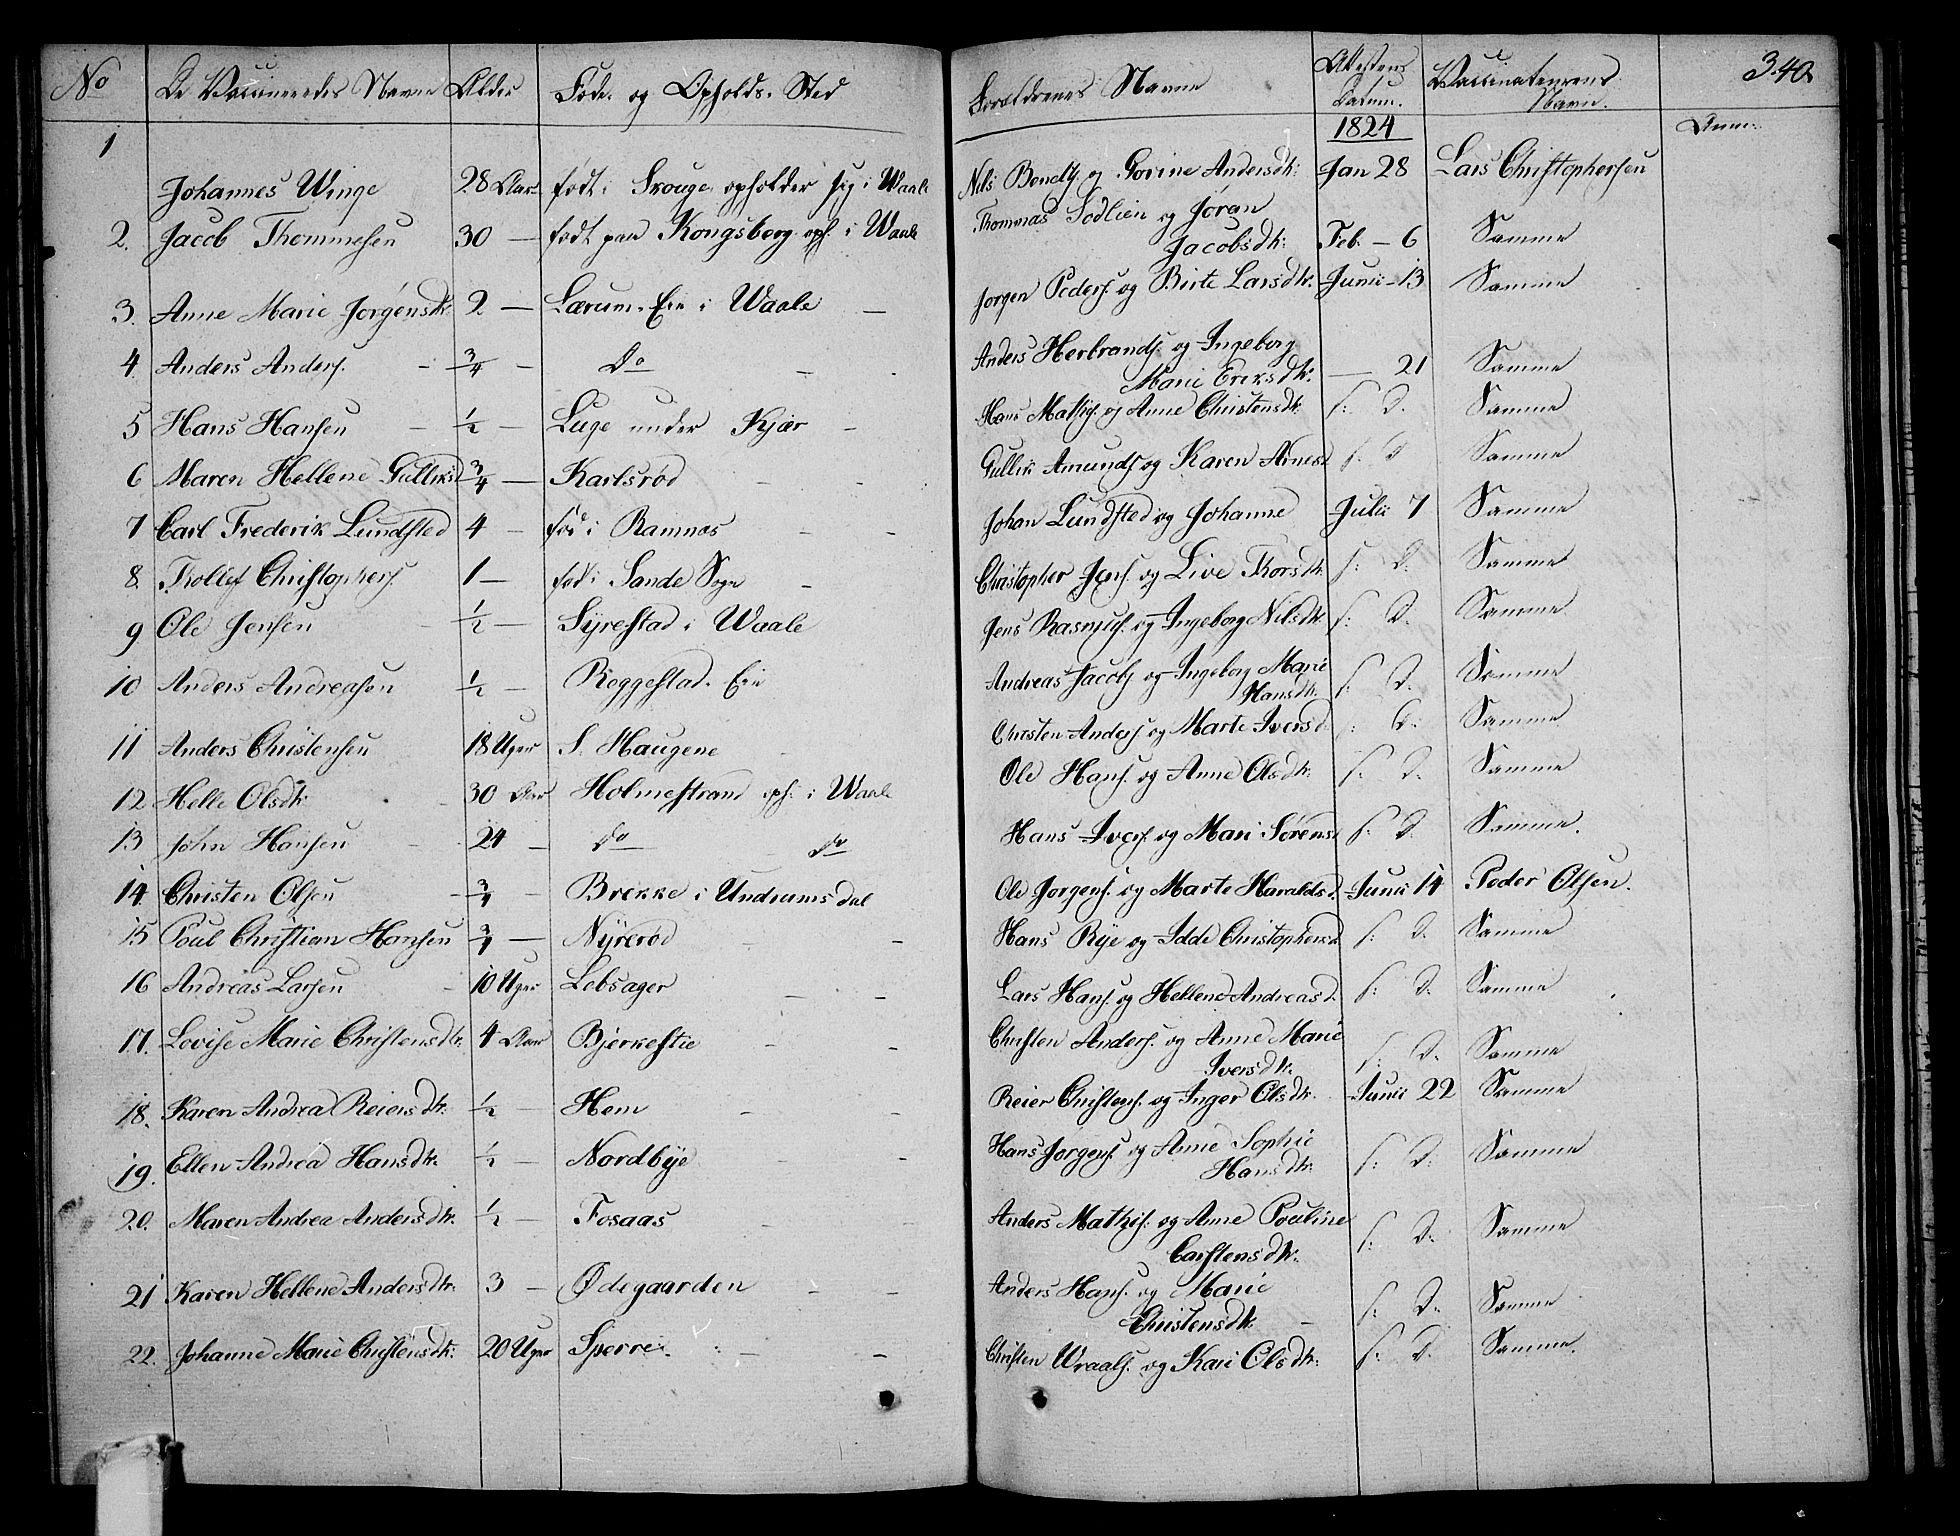 340.
No De Vaccineredes Navne Alder Føde- og Opholds-Sted Forældrenes Navne Attestens Datum. Vaccinateurens Navn. Anm:
1824
1 Johannes Winge 28 Aar født i opholder sig i Waale Nils Bendtſ og Gorine Andersdtr: Jan 28 Lars Christophersen
2. Jacob Thommesen 30 — født paa Kongsberg oph: i Waale Thommas Sodlien og Jøran
Jacobsdtr: Feb. — 6 Samme
3. Anne Marie Jørgensdtr. 2 — Lærum-Eie i Waale — Jørgen Pedersſ og Birte Larsdtr. Junii — 13 Samme
4. Anders Andersſ. 3/4 — Do — Anders Herbrandsſ og Ingeborg
Marie Eriksdtr. — 21 Samme
5 Hans Hansen 1/2 — Luge under Kjær — Hans Mathisſ og Anne Christensdtr. s: D. Samme
6 Maren Hellene Gulliksd 3/4 — Karlsrød Gullik Amundsſ og Karen Arnesd s: D Samme
7 Carl Frederik Lundsted 4 — fød i Ramnæs Johan Lundsted og Johanne Julii 7 Samme
8. Tollef Christophersſ 1 — fød i Sande Sogn Christopher Jensſ. og Live Thorsdtr. s: D. Samme
9 Ole Jensen 1/2 — Syrestad i Waale Jens Rasmusſ. og Ingeborg Nilsdtr s: D. Samme
10 Anders Andreasen 1/2 — Roggestad-Eie Andreas Jacobsſ og Ingeborg Marie
Hansdtr. s: D. Samme
11 Anders Christensen 18 Uger S. Haugene Christen Andersſ og Marte Iversd s: D. Samme
12 Helle Olsdtr 30 Aar Holmestrand oph: i Waale Ole Hansſ. og Anne Olsdtr. s: D. Samme
13 John Hansen 24 — Do Do Hans Iversſ. og Mari Sørensd s: D. Samme.
14 Christen Olsen 3/4 — Brekke i Undrumsdal Ole Jørgensſ. og Marte Haraldsd. Junii 14 Peder Olsen.
15 Poul Christian Hansen 3/4 — Nyrerød Hans Rye og Idde Christophersd. s: D. Samme
16 Andreas Larsen 10 Uger Lebsager Lars Hansſ. og Hellene Andreasd. s: D. Samme
17. Lovise Marie Christensdtr. 4 Aar Bjerkestie Christen Andersſ. og Anne Marie
Iversdtr. s: D. Samme
18. Karen Andrea Reiersdtr. 1/2 — Hem Reier Christensſ. og Inger Olsdtr. Junii 22 Samme
19. Ellen Andrea Hansdtr. 1/2 — Nordbye Hans Jorgensſ. og Anne Sophie
Hansdtr. s: D. Samme
20. Maren Andrea Andersdtr. 1/2 — Fosaas Anders Mathisſ. og Anne Pouline
Carstensdtr. s: D. Samme
21 Karen Hellene Andersdtr. 3 — Ødegaarden Anders Hansſ. og Marie
Christensdtr. s: D. Samme
22. Johanne Marie Christensdtr: 20 Uger Sperre Christen Wraalsſ. og Kari Olsdtr: s: D. Samme.